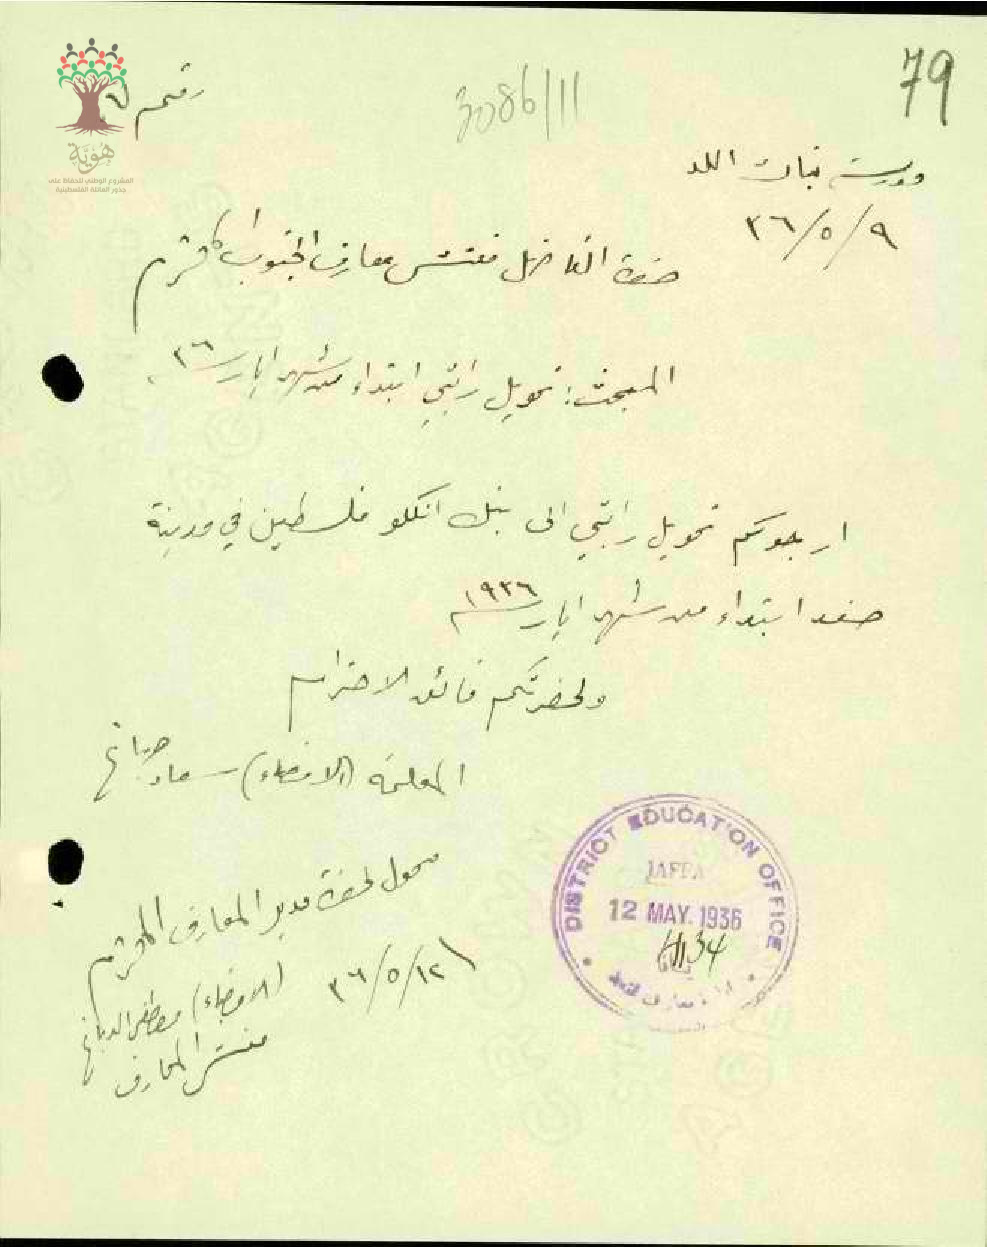 79
3086/11
رقم ٦
هوية
المشروع الوطني للحفاظ على
جذور العائلة الفلسطينية
مدرسة بنات اللد
٣٦/٥/٩
حضرة الفاضل مفتش معارف الجنوب المحترم
المبحث: تحويل راتبي ابتداء من شهر ايار سنة ٣٦
ارجوكم تحويل راتبي الى بنك انكلو فلسطين في مدينة
صفد ابتداء من شهر ايار سنة ١٩٣٦
ولحضرتكم فائق الاحترام
المعلمة (الامضاء) سعاد صباغ
DISTRICT EDUCATION OFFICE
JAFFA
12 MAY. 1936
يافا
محول لحضرة مدير المعارف المحترم
٣٦/٥/١٢
(الامضاء) مصطفى الدباغ
مفتش المعارف